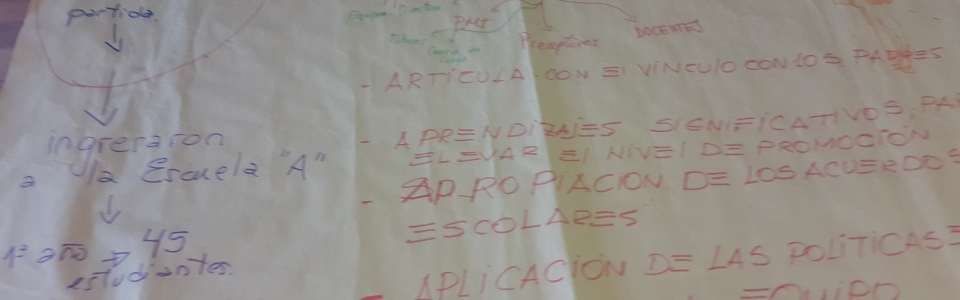 partida.
ingresaron
a la Escuela "A"
1º año → 45
estudiantes.
Equipo Directivo
PMI
Tutores
Preceptores
DOCENTES
- ARTÍCULA CON El VÍNCULO CON LOS PADRES
- APRENDIZAJES SIGNIFICATIVOS, PA
ELEVAR El NIVEl DE PROMOCIÓN
- APROPIACION DE LOS ACUERDOS
ESCOLARES
- APLICACIÓN DE LAS POLÍTICAS
EQUIPO